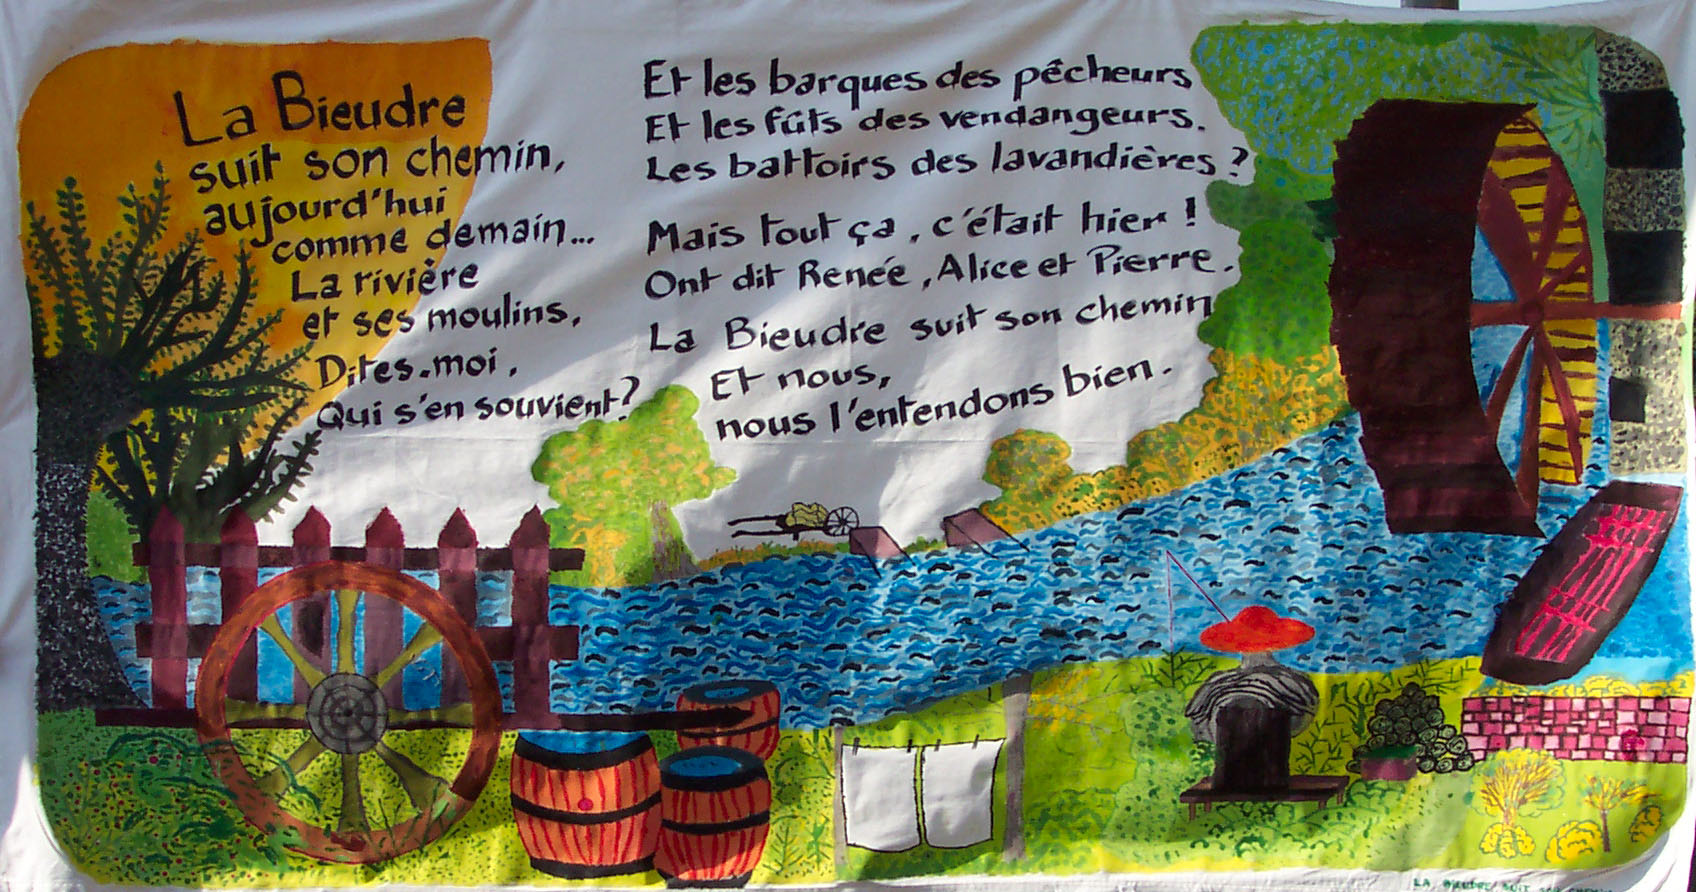 La Bieudre
suit son chemin,
aujourd'hui
comme demain...
La rivière
et ses moulins,
Dites-moi,
Qui s'en souvient?
Et les barques des pêcheurs
Et les fûts des vendangeurs.
Les battoirs des lavandières?
Mais tout ça, c'était hier!
Ont dit Renée, Alice et Pierre.
La Bieudre suit son chemin
Et nous,
nous l'entendons bien.
LA BIEUDRE SUIT SON